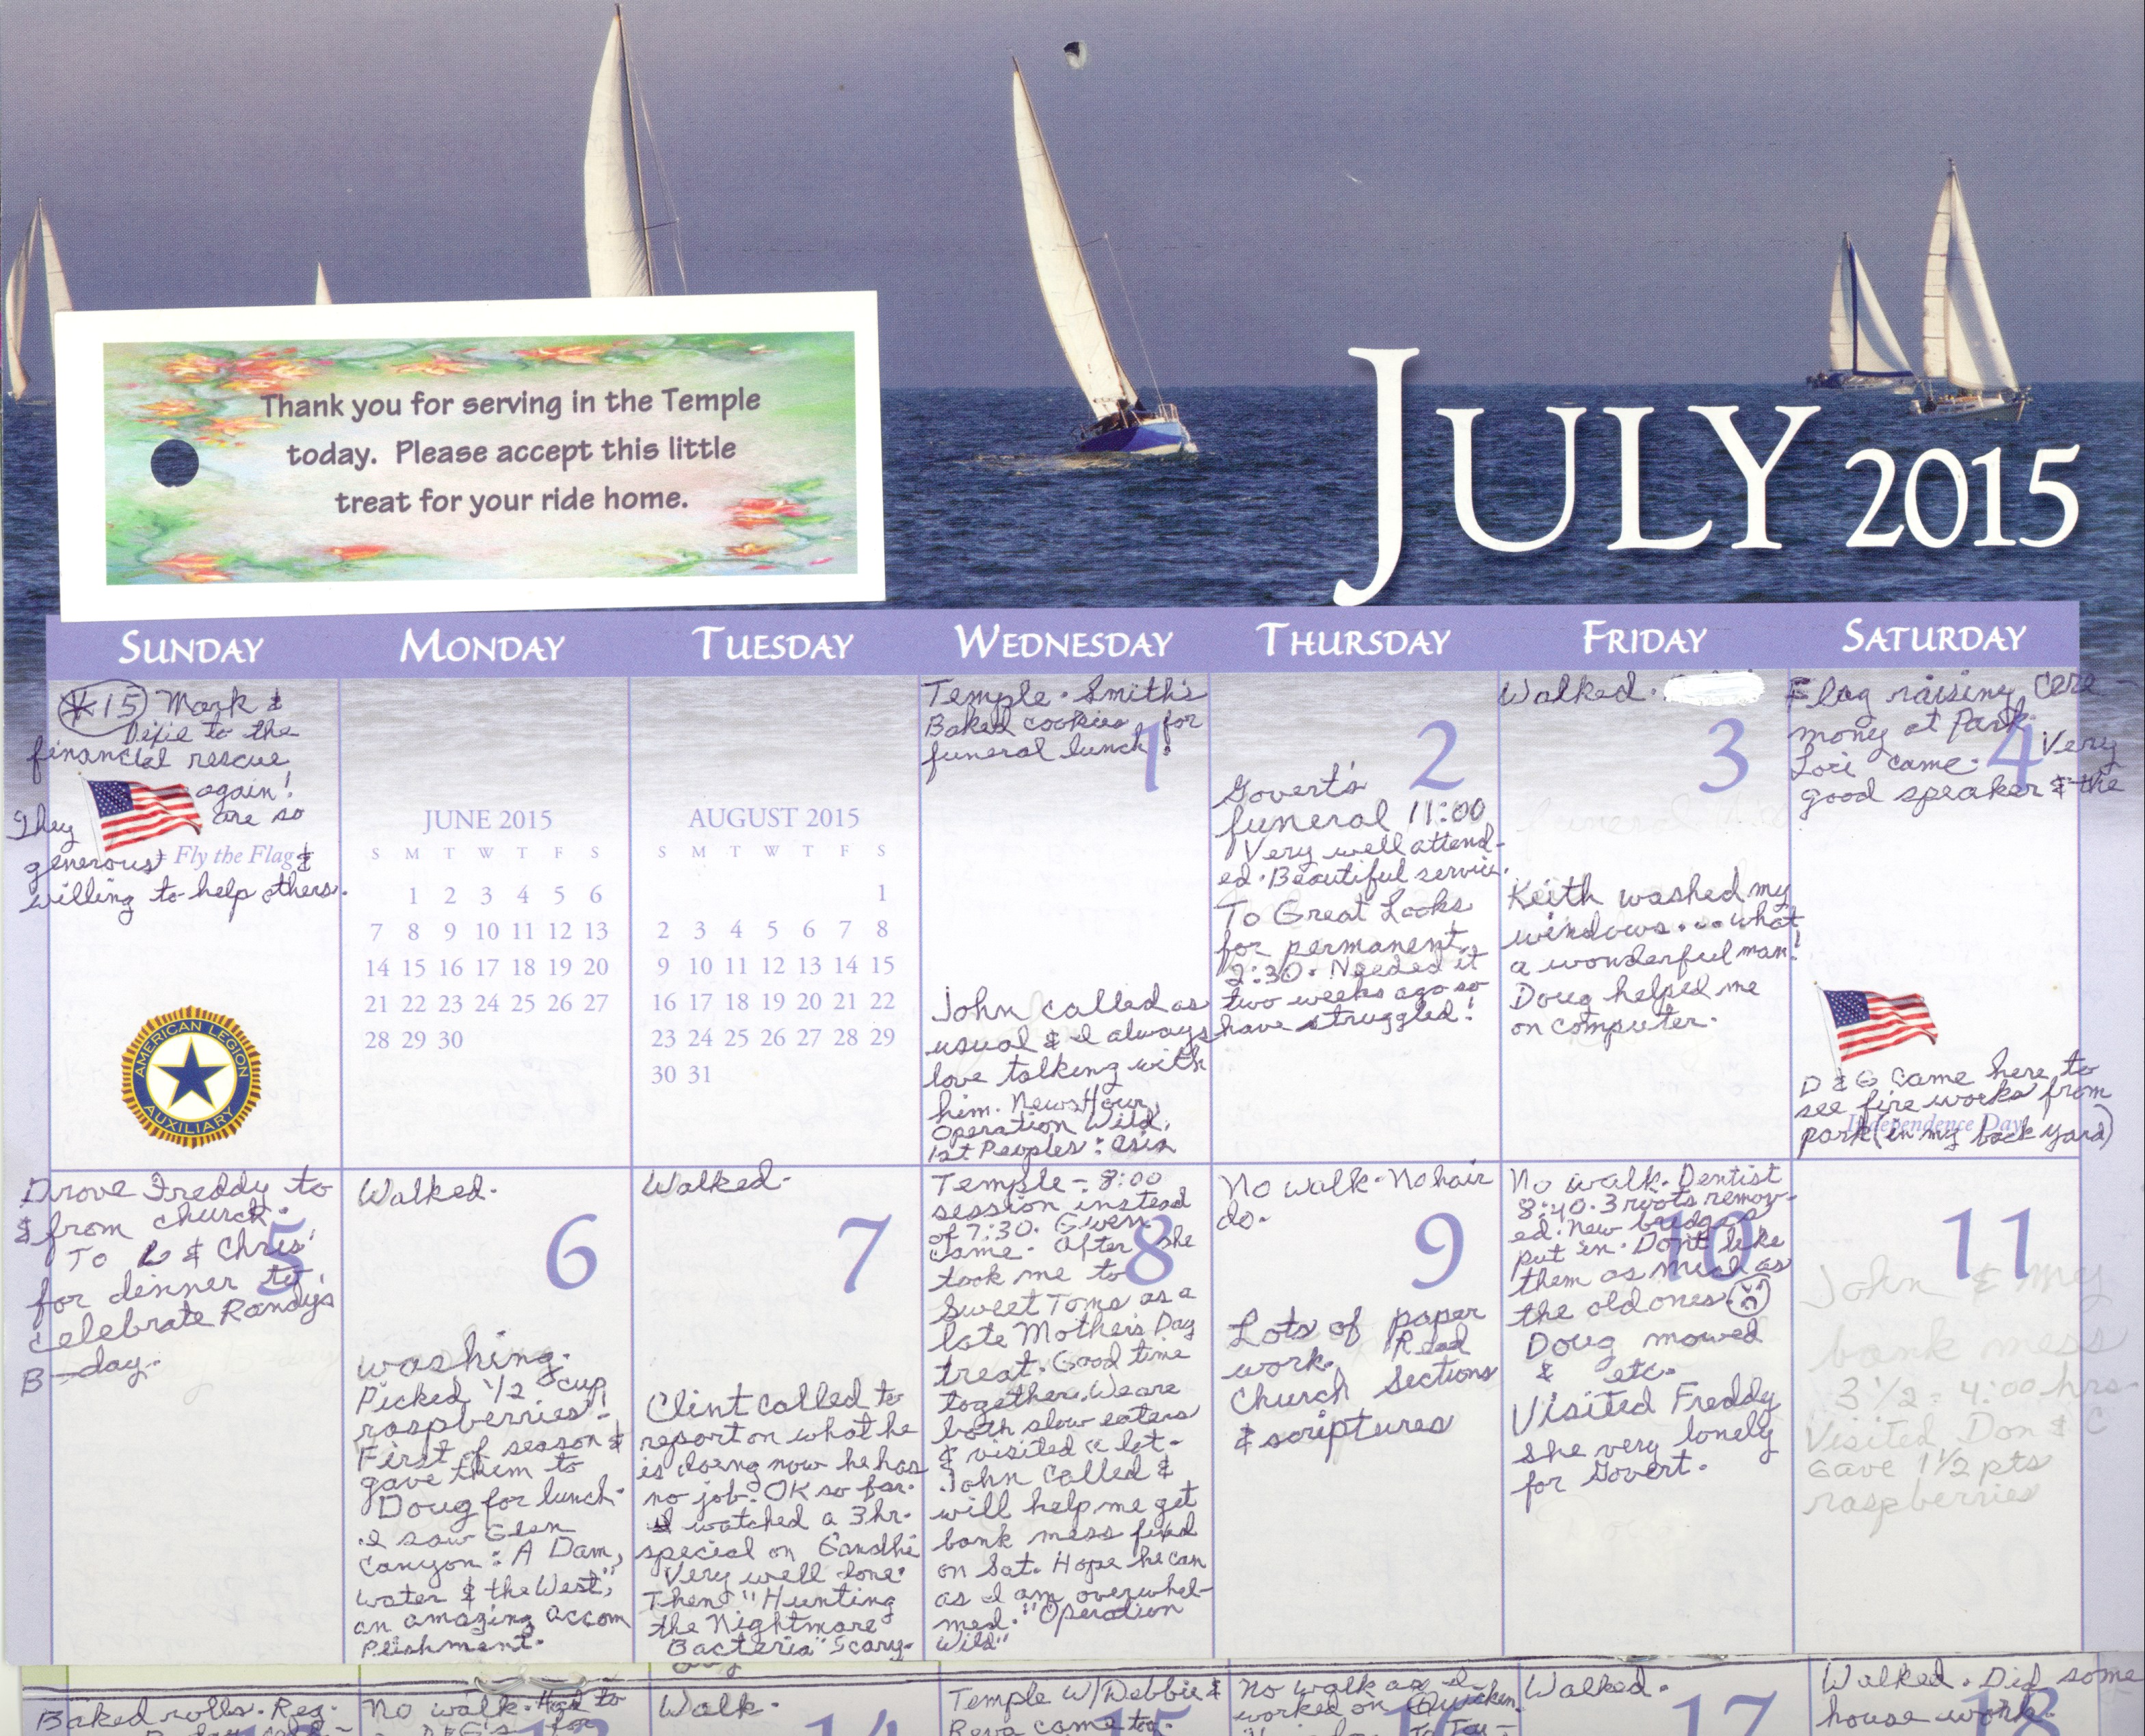 Thank you for serving in the Temple
today. Please accept this little
treat for your ride home.
JULY 2015
SUNDAY MONDAY TUESDAY WEDNESDAY THURSDAY FRIDAY SATURDAY
*15 Mark &
Dixie to the
financial rescue
again!
They are so
generous &
Fly the Flag
willing to help others.
AMERICAN LEGION
AUXILIARY
JUNE 2015
S M T W T F S
1 2 3 4 5 6
7 8 9 10 11 12 13
14 15 16 17 18 19 20
21 22 23 24 25 26 27
28 29 30
AUGUST 2015
S M T W T F S
1
2 3 4 5 6 7 8
9 10 11 12 13 14 15
16 17 18 19 20 21 22
23 24 25 26 27 28 29
30 31
1
Temple. Smith's
Baked cookies for
funeral lunch!
John called as
usual & I always
love talking with
him. NewsHour,
Operation Wild,
1st Peoples: asia
2
Govert's
funeral 11:00
Very well attend-
ed. Beautiful service.
To Great Looks
for permanent
2:30. Needed it
two weeks ago so
have struggled!
3
Walked.
Keith washed my
windows... what
a wonderful man!
Doug helped me
on computer.
4
Flag raising cere-
mony at Park.
Lori came. Very
good speaker & the
D & G came here to
see fire works from
Independence Day
park (in my back yard)
5
Drove Freddy to
& from church.
To L & Chris'
for dinner to
celebrate Randy's
B-day.
6
Walked.
washing.
Picked 1/2 cup
raspberries!
First of season &
gave them to
Doug for lunch.
I saw Glen
Canyon: A Dam,
Water & the West",
an amazing accom
plishment.
7
Walked.
Clint called to
report on what he
is doing now he has
no job. OK so far.
I watched a 3hr.
special on Gandhi
Very well done.
Then "Hunting
the Nightmare
Bacteria" Scary.
8
Temple - 8:00
session instead
of 7:30. Gwen
came. After she
took me to
Sweet Toms as a
late Mother's Day
treat. Good time
together. We are
both slow eaters
& visited a lot.
John called &
will help me get
bank mess fixed
on Sat. Hope he can
as I am overwhel-
med. "Operation
Wild"
9
No walk. No hair
do.
Lots of paper
work. Read
Church Sections
& scriptures
10
No walk. Dentist
8:40. 3 roots remov-
ed. New bridges
put in. Don't like
them as much as
the old ones.
Doug mowed
& etc.
Visited Freddy
she very lonely
for Govert.
11
John & my
bank mess
3 1/2 = 4:00 hrs.
Visited Don & C
Gave 1 1/2 pts
raspberries
Baked rolls. Reg.
No walk. Had to
D&G's for
13
Walk.
14
Temple W/Debbie &
Reva came too.
15
No walk as I
worked on Quicken.
16
Walked.
17
Walked. Did some
house work.
18